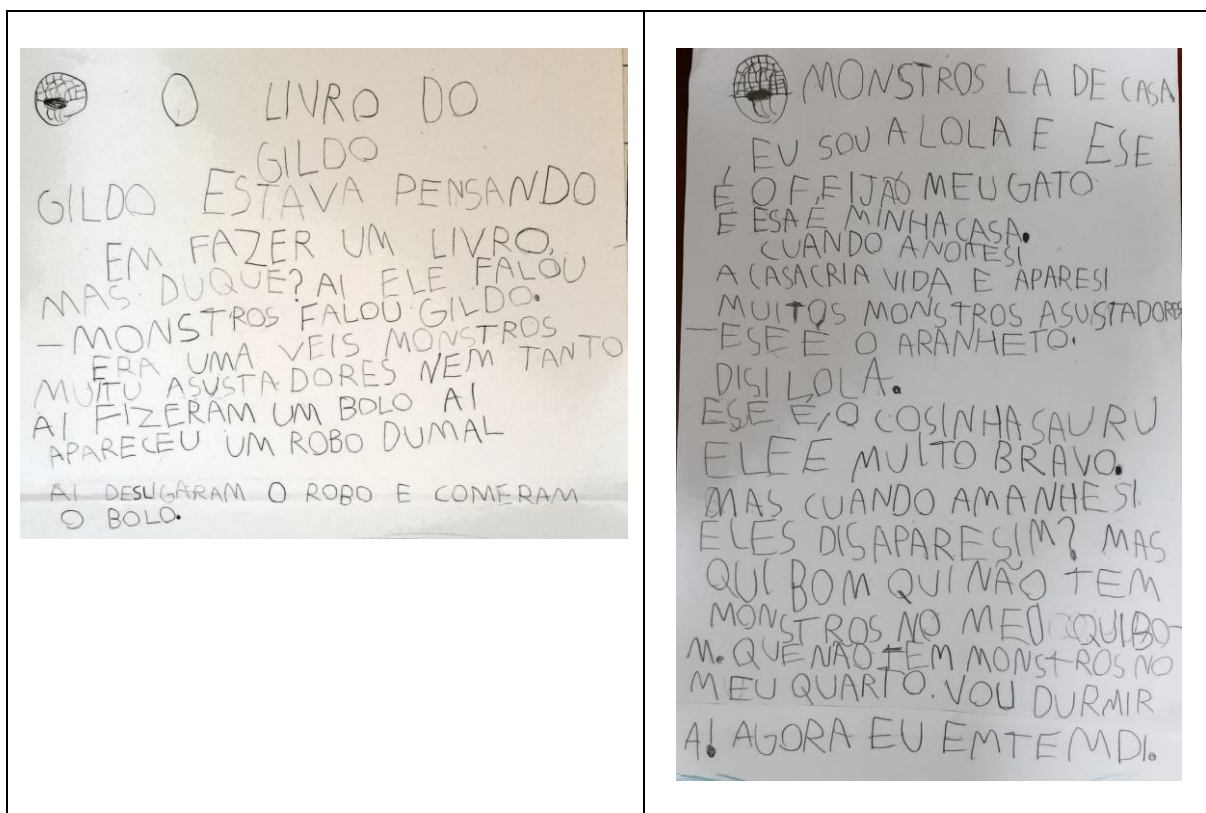 O LIVRO DO
GILDO
GILDO ESTAVA PENSANDO
EM FAZER UM LIVRO,
MAS DUQUE? AI ELE FALOU
— MONSTROS FALOU GILDO.
ERA UMA VEIS MONSTROS
MUITU ASUSTADORES NEM TANTO
AI FIZERAM UM BOLO AI
APARECEU UM ROBO DUMAL
AI DESLIGARAM O ROBO E COMERAM
O BOLO.
MONSTROS LA DE CASA
EU SOU A LOLA E ESE
É O FEIJÃO MEU GATO
E ESA É MINHA CASA.
CUANDO ANOITESI
A CASA CRIA VIDA E APARESI
MUITOS MONSTROS ASUSTADORES
— ESE É O ARANHETO.
DISI LOLA.
ESE É O COSINHASAURU
ELE E MUITO BRAVO.
MAS CUANDO AMANHESI
ELES DISAPARESIM? MAS
QUI BOM QUI NÃO TEM
MONSTROS NO MEU QUIBO-
M. QUE NÃO TEM MONSTROS NO
MEU QUARTO. VOU DURMIR
A! AGORA EU EMTEMDI.